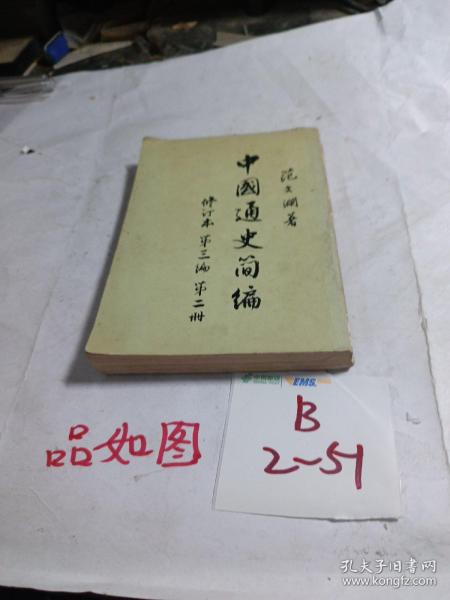 范文瀾著
中國通史简编
修订本 第三编 第二册
中国邮政
EMS
B
2~51
品如图
孔夫子旧书网
www.kongfz.com